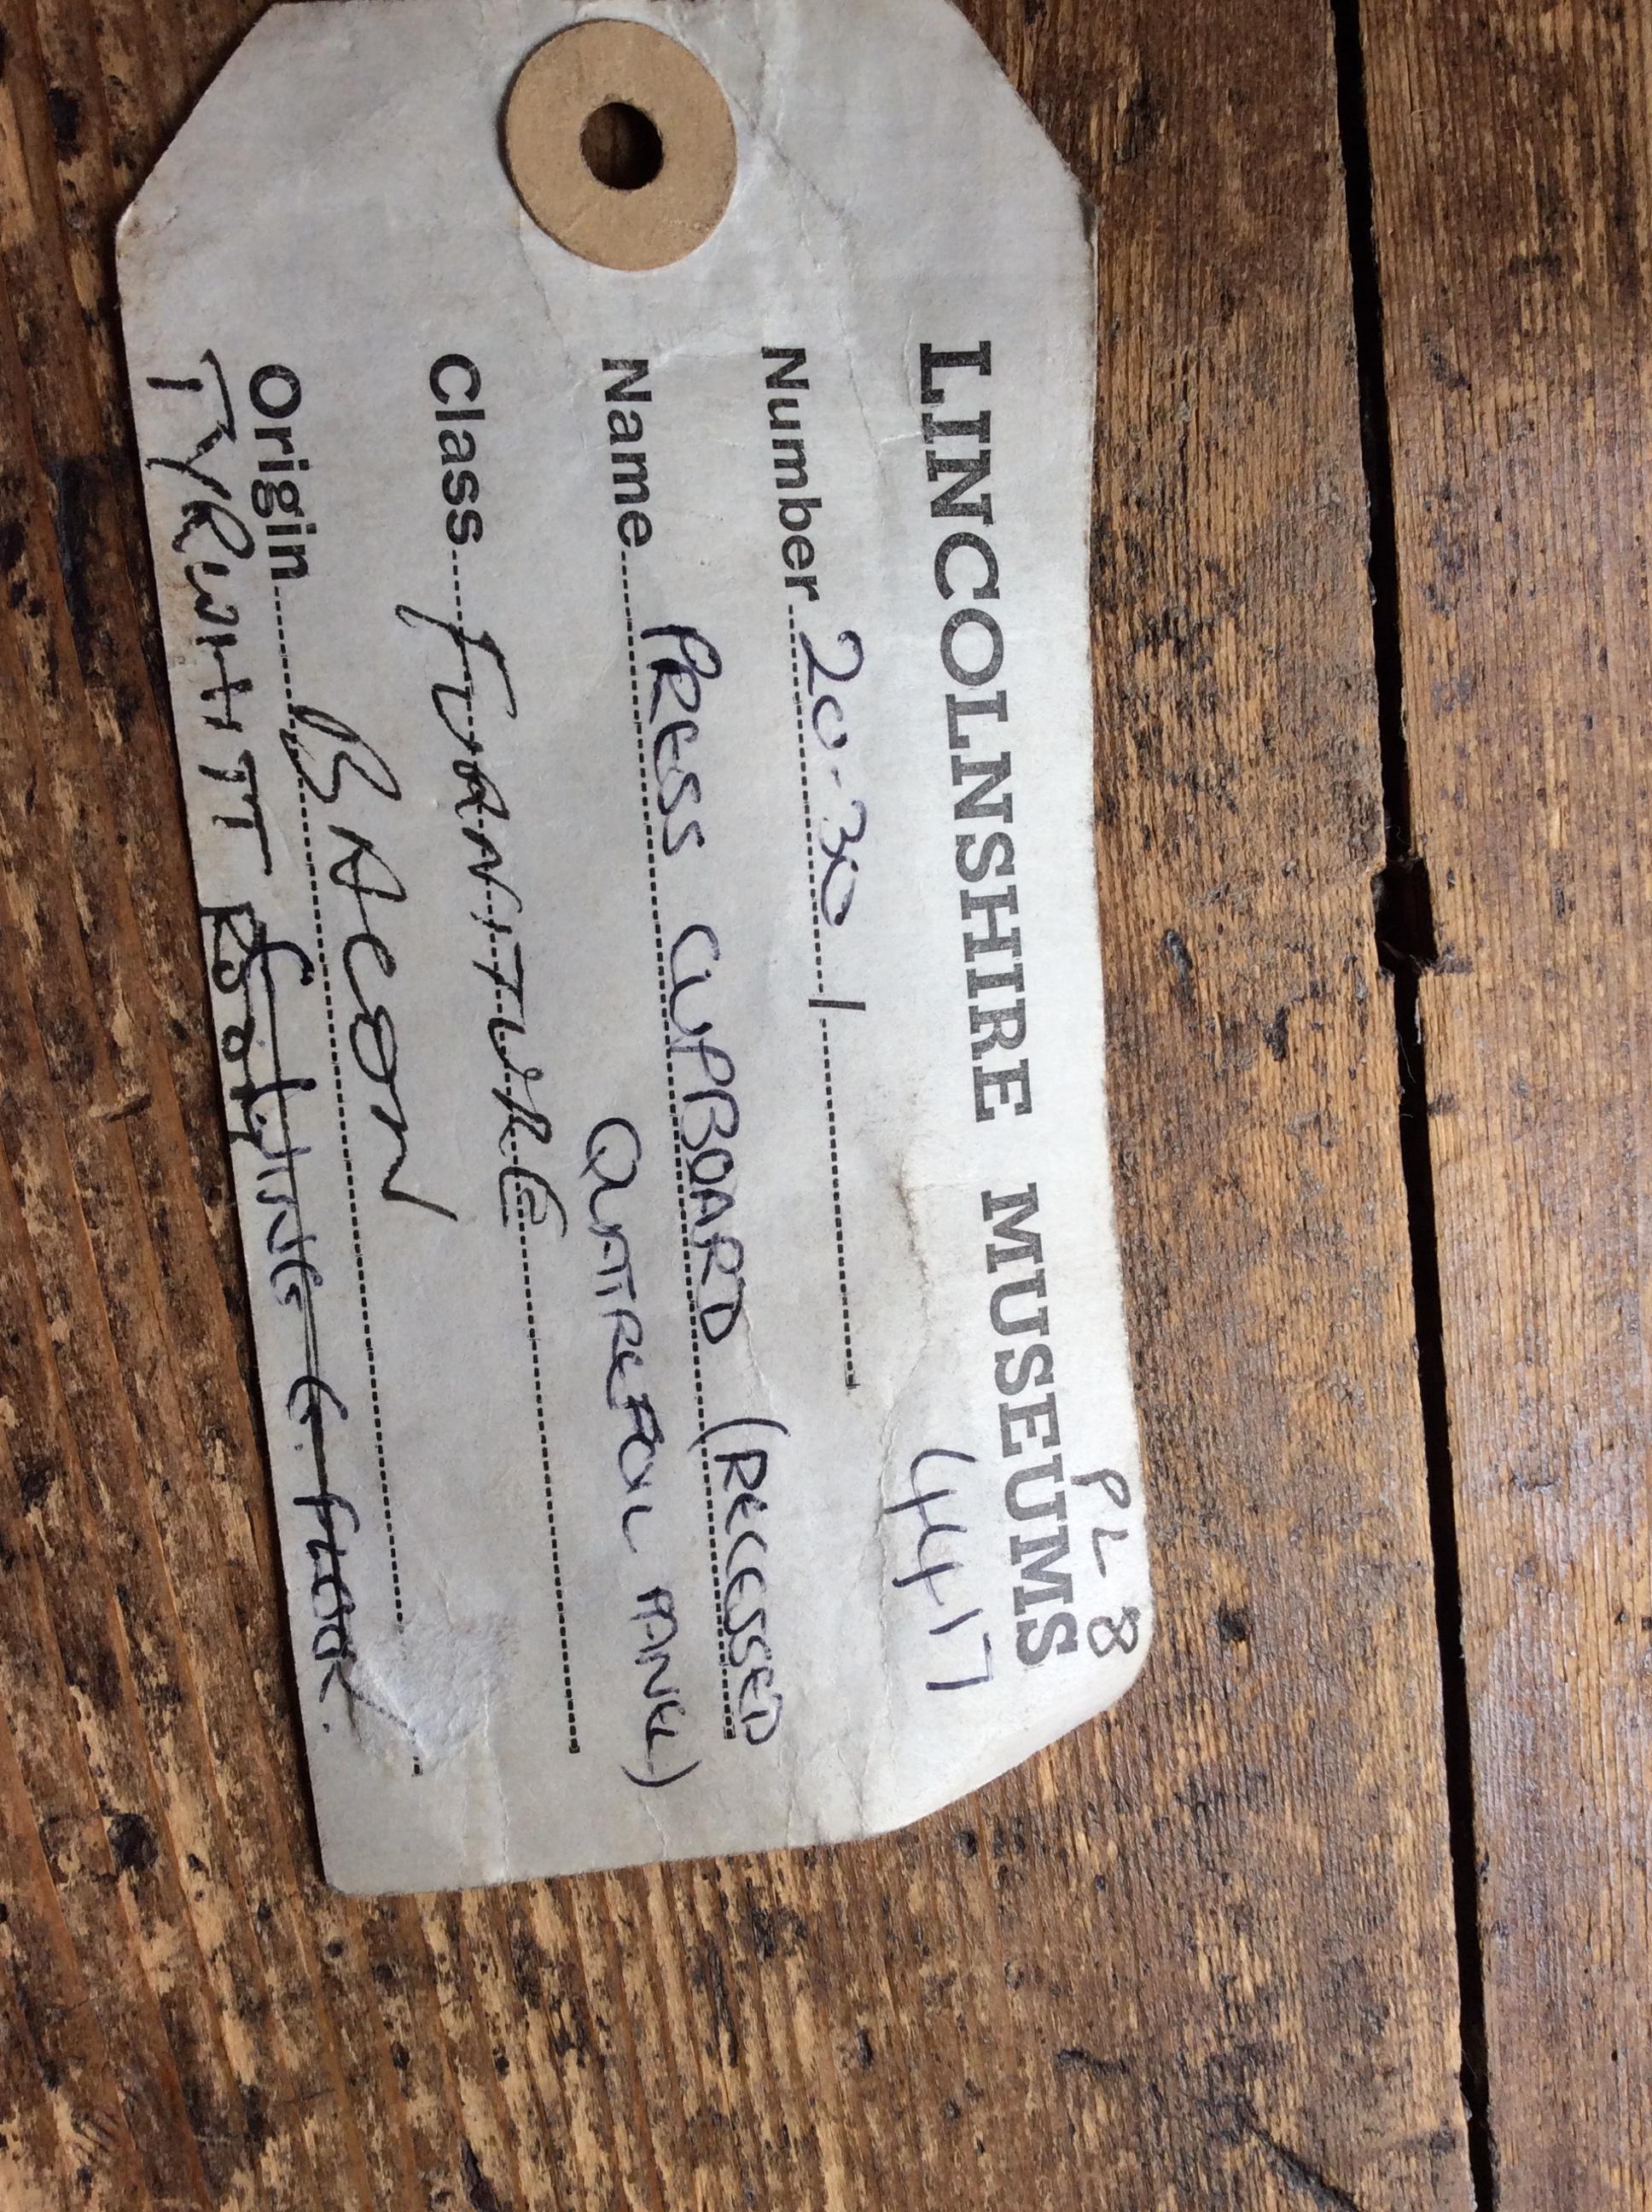 PL 8
LINCOLNSHIRE MUSEUMS
4417
Number 20-30 1
Name PRESS CUPBOARD (RECESSED
QUATREFOIL PANEL)
Class FURNITURE
Origin BACON
TYRWHITT